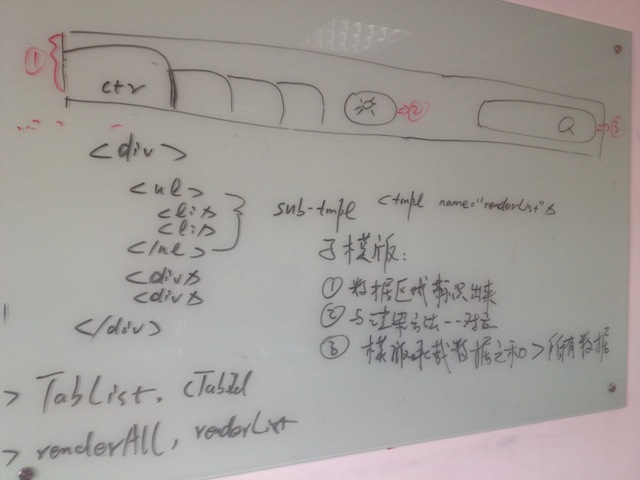 ①
ctr
②
Q
③
<div>
<ul>
<li/>
<li/>
</ul>
<div/>
<div/>
</div>
sub-tmpl <tmpl name="renderList"/>
子模版:
① 数据区域标识出来
② 与渲染方法一一对应
③ 模版承载数据之和>所有数据
> TabList, cTabId
> renderAll, renderList